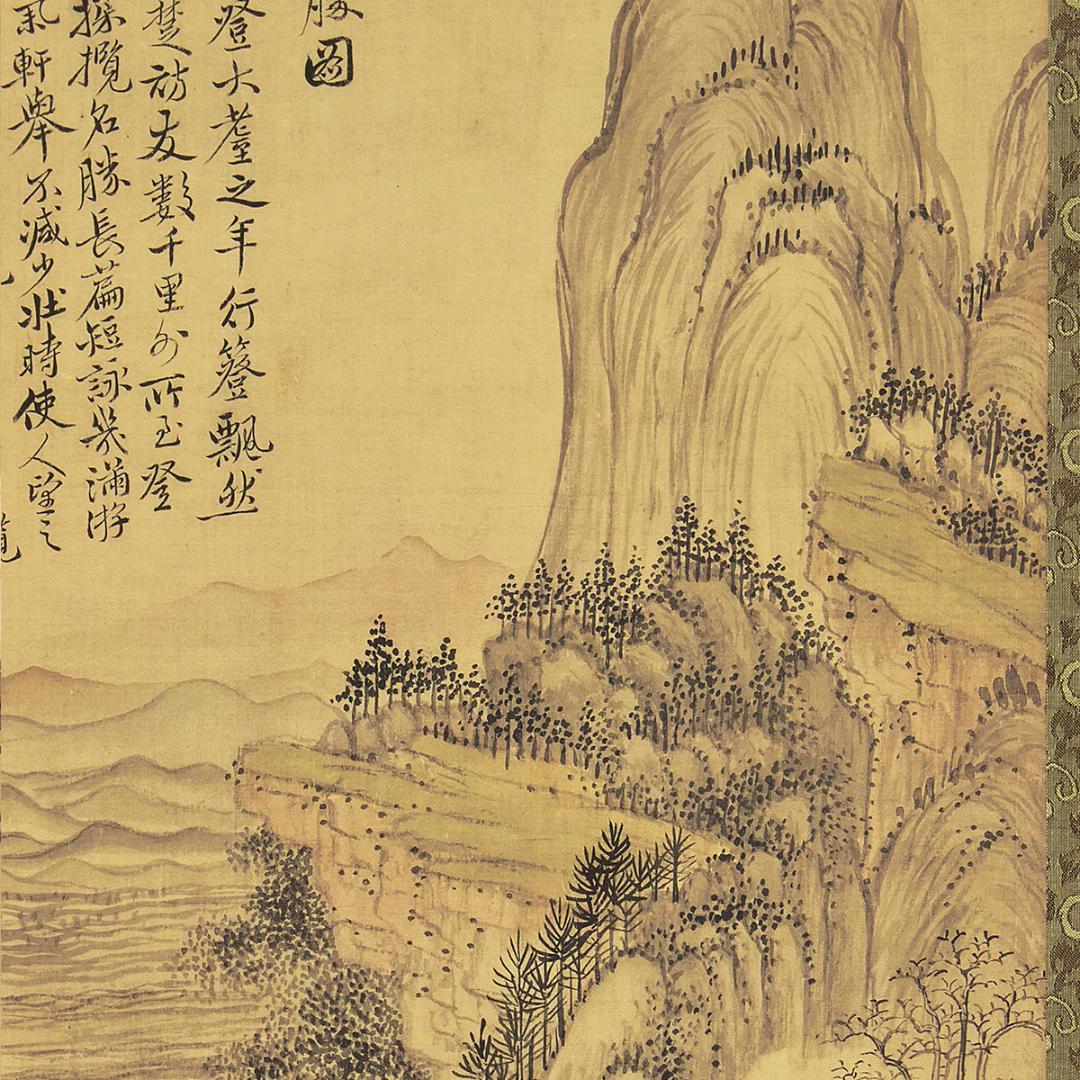 勝圖
登大耋之年行簦飄然
楚訪友數千里外所至登
探攬名勝長篇短詠幾滿游
氣軒舉不減少壯時使人望之